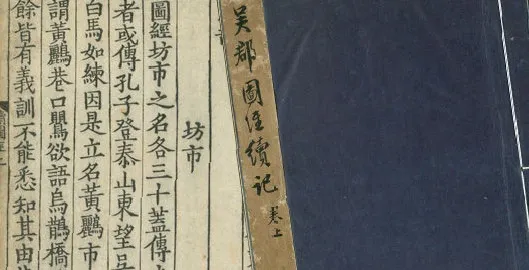 吴郡圖经續记 卷上
坊市
圖經坊市之名各三十蓋傳
者或傳孔子登泰山東望吳
白馬如練因是立名黃鸝市
謂黃鸝巷口鸎欲語烏鵲橋
餘皆有義訓不能悉知其由